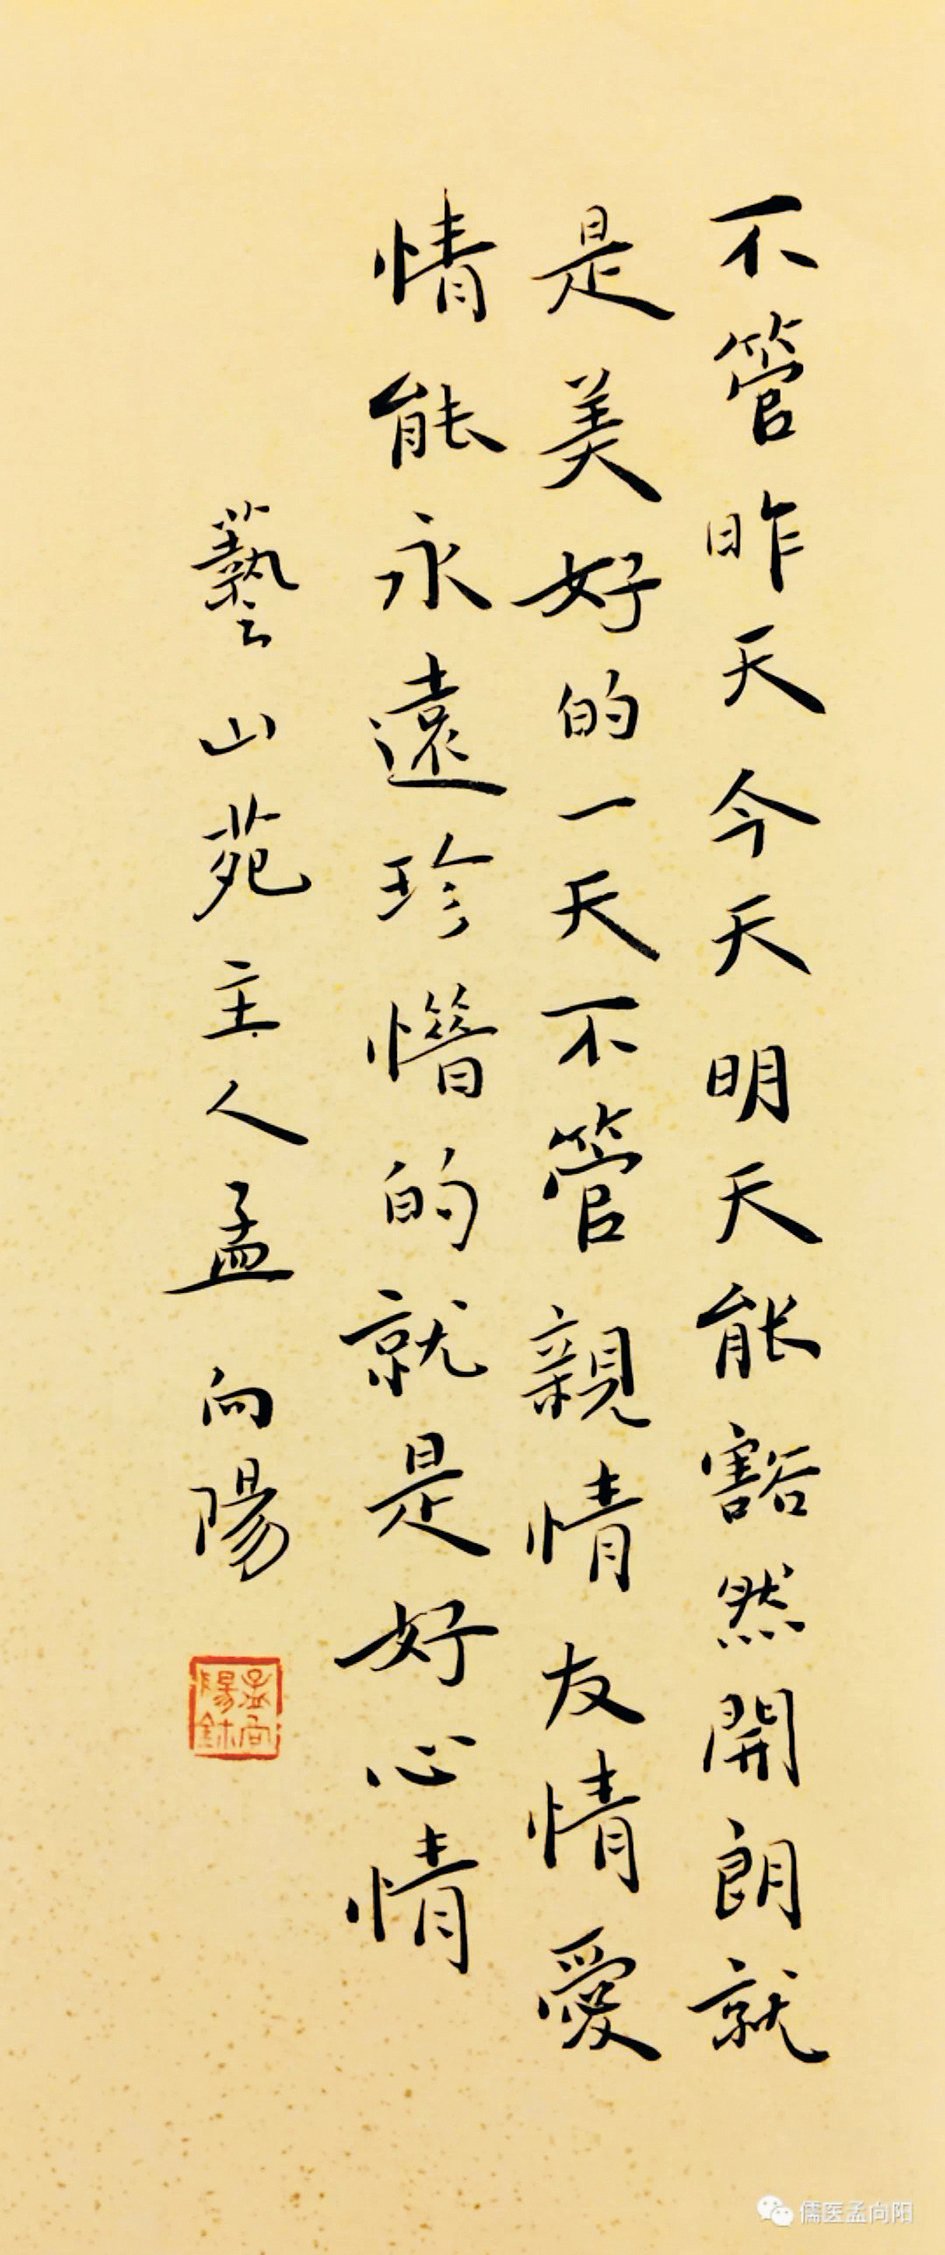 不管昨天今天明天能豁然開朗就
是美好的一天不管親情友情愛
情能永遠珍惜的就是好心情
藝山苑主人孟向陽
孟向陽鉥
儒医孟向阳